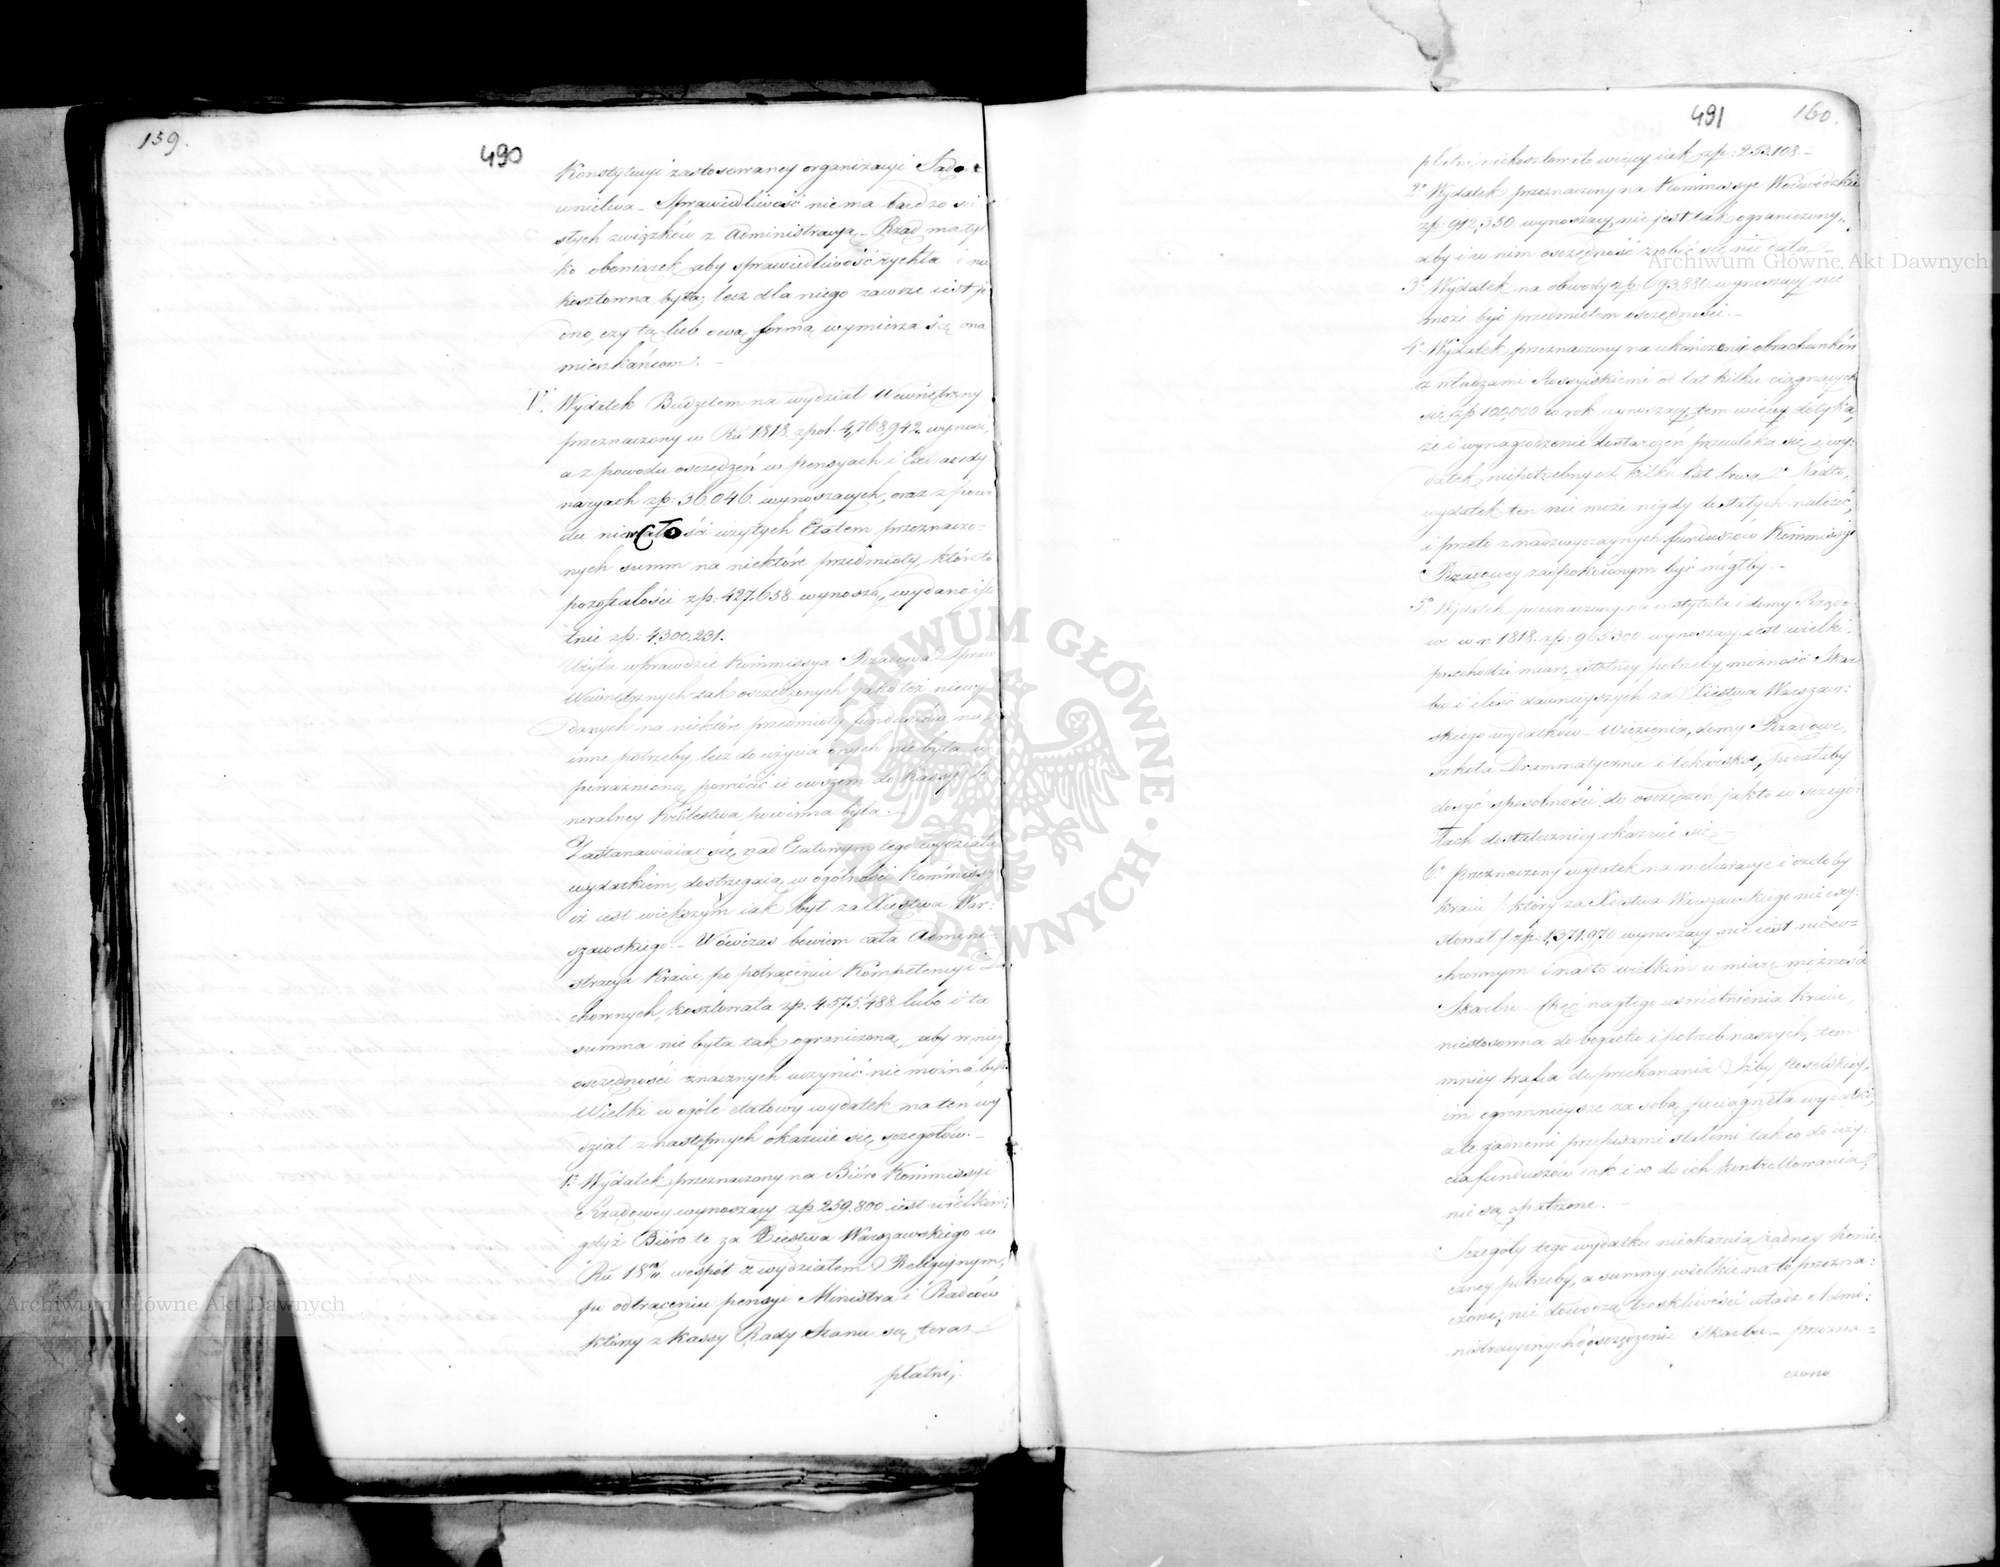 159.
490
Konstytucyi zastosowaney organizacyi Sado-
wnictwa – Sprawiedliwość nie ma bardzo ści
stych związków z Administracyą – Rząd ma tyl
ko obowiązek aby sprawiedliwość rychła i nie
kosztowna była, lecz dla niego zawsze iest je
dno, czy tą lub ową formą wymierza się ona
mieszkańcom. –
V. Wydatek Budżetem na wydział Wewnętrzny
przeznaczony w Rku 1818. zpol. 4,768,942. wynosi,
a z powodu oszczędzeń w pensyach i Extraordy
naryach zp: 36.046. wynoszących, oraz z powo
du nie w całości użytych Etatem przeznaczo-
nych summ na niektóre przedmioty, które to
pozostałości zp: 427,658 wynoszą, wydano isto
tnie zp: 4.300.231.
Użyła wprawdzie Kommissya Rządowa Spraw
Wewnętrznych tak oszczędzonych jako też niewy
danych na niektóre przedmioty funduszów na
inne potrzeby lecz do użycia onych nie była u
poważnioną, powrócić ie owszem do Kassy Je
neralney Królestwa powinna była. –
Zastanawiaiąc się nad Etatowym tego wydziału
wydatkiem, dostrzegaią w ogólności Kommissye
iż iest większym iak był za Xiestwa War:
szawskiego. – Wówczas bowiem cała Admini-
stracya Kraiu, po potrąceniu Kompetencyi Du
chownych, kosztowała zp: 4.575.488 lubo i ta
summa nie była tak ograniczoną, aby w niey
oszczędności znacznych uczynić nie można było.
Wielki w ogóle etatowy wydatek na ten wy
dział z następnych okazuie się szczegołów. –
1° Wydatek przeznaczony na Bióro Kommissyi
Rządowey wynoszący zp 259.800 iest wielkim;
gdyż Bióro te za Xiestwa Warszawskiego w
Rku 18 10/11 wespół z wydziałem Religiynym,
po odtrąceniu pensyi Ministra i Radców
którzy z Kassy Rady Stanu są teraz
płatni,
491
160.
płatni, niekosztowało więcey iak zp: 253.108. –
2° Wydatek przeznaczony na Kommissye Woiewódzkie
zp: 912,350 wynoszący, nie jest tak ograniczony,
aby i w nim oszczędność zrobić się nie dała –
3° Wydatek na obwody zp: 693,880. wynoszący nie
może być przedmiotem oszczędności. –
4° Wydatek przeznaczony na ukończenie obrachunków
z władzami Rossyiskiemi od lat kilku ciągnących
się zp 100,000 co rok wynoszący tem więcey dotyka,
że i wynagrodzenie dostarczeń przewleka się, i wy:
datek niepotrzebny od kilku lat trwa. – Nadto,
wydatek ten nie może nigdy do stałych należeć,
i przeto z nadzwyczaynych funduszów Kommissyi
Rządowey zaspokoionym być mógłby. –
5° Wydatek przeznaczony na instytuta i domy Rządo-
we w r. 1818. zp: 965.300 wynoszący iest wielki,
przechodzi miarę istotney potrzeby, możność Skar
bu i ilość dawnieyszych za Xiestwa Warszaw:
skiego wydatków – Więzienia, domy Rządowe,
szkoła Drammatyczna i lekarska, podałaby
dosyć sposobności do oszczędzeń jak to w szczegó:
łach dostateczniey okazuie się –
6° Przeznaczony wydatek na melioracye i ozdoby
kraiu /: który za Xiestwa Warszawskiego nie exy:
stował :/ zp: 1,371.970 wynoszący nie iest nieu=
chronnym i nadto wielkim w miarę możności
Skarbu. – Chęć nagłego uświetnienia Kraiu,
niestosowna do bogactw i potrzeb naszych, tem
mniey trafia do przekonania Izby Poselskiey,
im ogromnieysze za sobą pociągnęła wydatki,
a te żadnemi przepisami stałemi tak co do uży:
cia funduszów iak i co do ich kontrollowania,
nie są opatrzone. –
Szczegóły tego wydatku nieokazuią żadney konie:
czney potrzeby, a summy wielkie na to przezna:
czone, nie dowodzą troskliwości władz Admi:
nistracyinych o oszczędzenie Skarbu – przezna=
czono